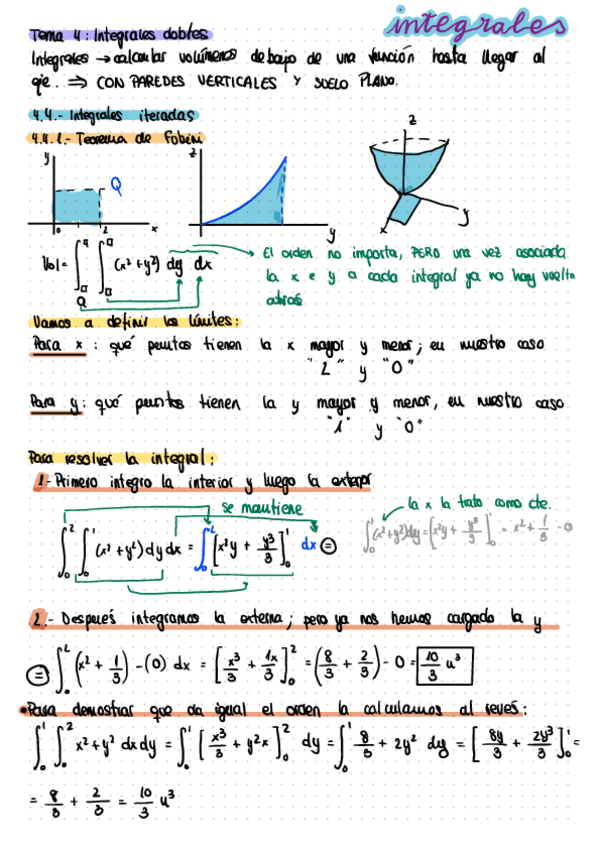 integrales
Tema 4: Integrales dobles
Integrales → calcular volúmenes debajo de una función hasta llegar al
eje. ⇒ CON PAREDES VERTICALES Y SUELO PLANO.
4.4.- Integrales iteradas
4.4.1.- Teorema de Fobini
y
Q
0 2 x
z
y
z
x y
Vol = ∫□^□ ∫□^□ (x² + y²) dy dx
Q
El orden no importa, PERO una vez asociada
la x e y a cada integral ya no hay vuelta
atrás
Vamos a definir los límites:
Para x: qué puntos tienen la x mayor y menor; en nuestro caso
"2" y "0"
Para y: qué puntos tienen la y mayor y menor, en nuestro caso
"1" y "0"
Para resolver la integral:
1.- Primero integro la interior y luego la exterior
se mantiene
la x la trato como cte.
∫₀² ∫₀¹ (x² + y²) dy dx = ∫₀² [x²y + y³/3]₀¹ dx =
∫₀¹ (x² + y²) dy = [x²y + y³/3]₀¹ = x² + 1/3 - 0
2.- Después integramos la externa; pero ya nos hemos cargado la y
= ∫₀² (x² + 1/3) - (0) dx = [x³/3 + 1x/3]₀² = (8/3 + 2/3) - 0 = 10/3 u³
• Para demostrar que da igual el orden la calculamos al revés:
∫₀¹ ∫₀² x² + y² dx dy = ∫₀¹ [x³/3 + y²x]₀² dy = ∫₀¹ 8/3 + 2y² dy = [8y/3 + 2y³/3]₀¹ =
= 8/3 + 2/3 = 10/3 u³